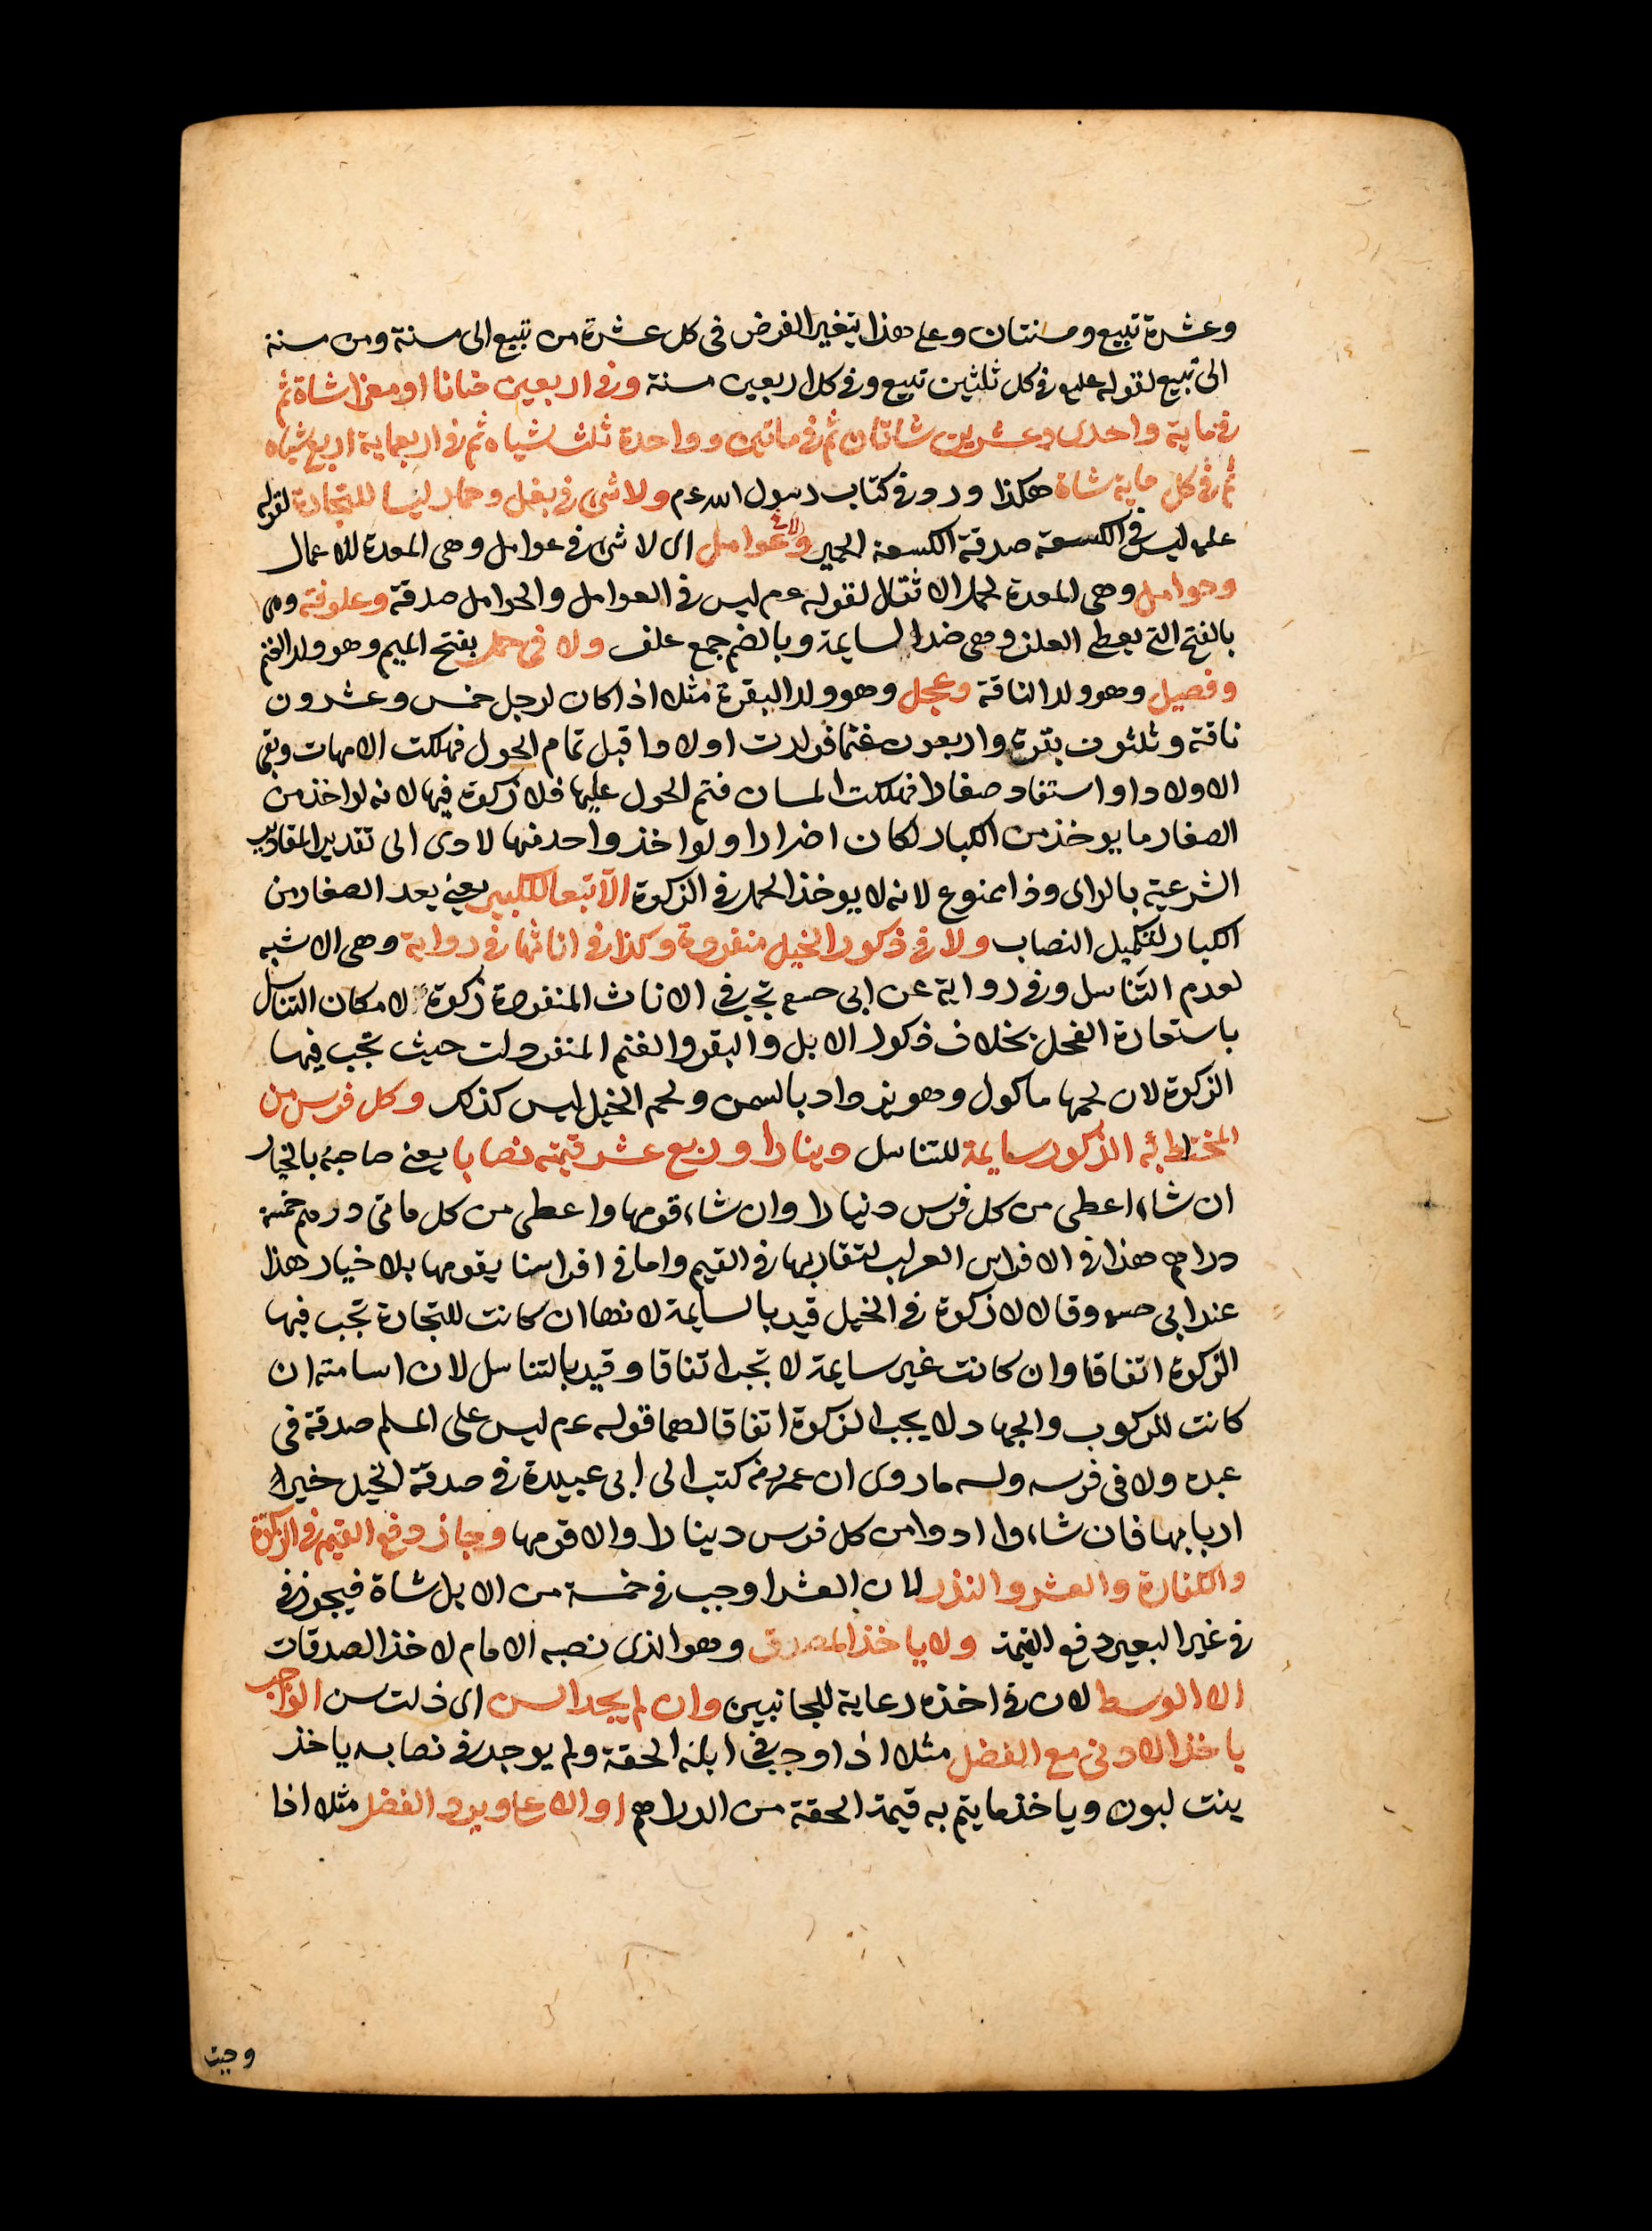 وعشرة تبيع ومسنتان وعلى هذا يتغير الفرض فى كل عشرة من تبيع الى مسنة ومن مسنة
الى تبيع لقوله علم فى كل ثلثين تبيع وفى كل اربعين مسنة وفى اربعين ضانا او معزا شاة ثم
فى ماية واحدى وعشرين شاتان ثم فى ماتين وواحدة ثلث شياه ثم فى اربعماية اربع شياه
ثم فى كل ماية شاة هكذا ورد فى كتاب رسول الله عم ولا شئ فى بغل وحمار ليسا للتجارة لقوله
علم ليس فى الكسعة صدقة الكسعة الحمير ولا فى عوامل اى لا شئ فى عوامل وهى المعدة للاعمال
وحوامل وهى المعدة لحمل الاثقال لقوله عم ليس فى العوامل والحوامل صدقة وعلوفة وهى
بالفتح التى يعطى العلف وهى ضد السايمة وبالضم جمع علف ولا فى حمل بفتح الميم وهو ولد الغنم
وفصيل وهو ولد الناقة وعجل وهو ولد البقرة مثلا اذا كان لرجل خمس وعشرون
ناقة وثلثون بقرة واربعون غنما فولدت اولادا قبل تمام الحول فهلكت الامهات وبقى
الاولاد او استفاد صغارا فهلكت المسان فتم الحول عليها فلا زكوة فيها لانه لو اخذ من
الصغار ما يوخذ من الكبار لكان اضرارا ولو اخذ واحد منها لادى الى تقدير المقادير
الشرعية بالراى وذا ممنوع لانه لا يوخذ الحمل فى الزكوة الا تبعا للكبير يعنى يعد الصغار من
الكبار لتكميل النصاب ولا فى ذكور الخيل منفردة وكذا فى اناثها فى رواية وهى الاشبه
لعدم التناسل وفى رواية عن ابى حسه تجب فى الاناث المنفردة زكوة لامكان التناسل
باستعارة الفحل بخلاف ذكور الابل والبقر والغنم المنفردات حيث تجب فيها
الزكوة لان لحمها ماكول وهو يزداد بالسمن ولحم الخيل ليس كذلك وكل فرس من
المختلط به الذكور سايمة للتناسل دينارا او ربع عشر قيمته نصابا يعنى صاحبه بالخيار
ان شاء اعطى من كل فرس دينارا وان شاء قومها واعطى من كل ماتى درهم خمسة
دراهم هذا فى الافراس العرب لتقاربها فى القيم واما فى افراسنا يقومها بلا خيار هذا
عند ابى حسه وقالا لا زكوة فى الخيل قيد بالسايمة لانها ان كانت للتجارة تجب فيها
الزكوة اتفاقا وان كانت غير سايمة لا تجب اتفاقا وقيد بالتناسل لان اسامته ان
كانت للركوب والجهاد لا يجب الزكوة اتفاقا لهما قوله عم ليس على المسلم صدقة فى
عبده ولا فى فرسه وله ما روى ان عمر رض كتب الى ابى عبيدة فى صدقة الخيل خير
اربابها فان شاءوا ادوا من كل فرس دينارا والا قومها وجاز دفع القيم فى الزكوة
والكفارة والعشر والنذر لان الشرع اوجب فى خمسة من الابل شاة فيجوز فى
فى غير البعير دفع القيمة ولا ياخذ المصدق وهو الذى نصبه الامام لاخذ الصدقات
الا الوسط لان فى اخذه رعاية للجانبين وان لم يجد السن اى ذلت سن الواجب
ياخذ الادنى مع الفضل مثلا اذا وجب فى ابله الحقة ولم يوجد فى نصابه ياخذ
بنت لبون وياخذ ما يتم به قيمة الحقة من الدراهم او الاعلى ويرد الفضل مثلا اذا
وجبت